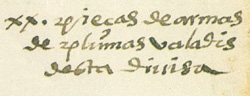 xx. pieças de armas
de plumas valadis
desta divisa